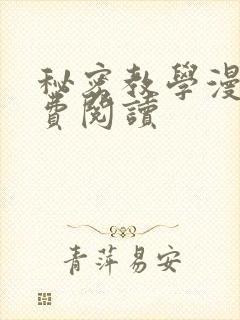 秘密教學漫
費閱讀
青萍易安